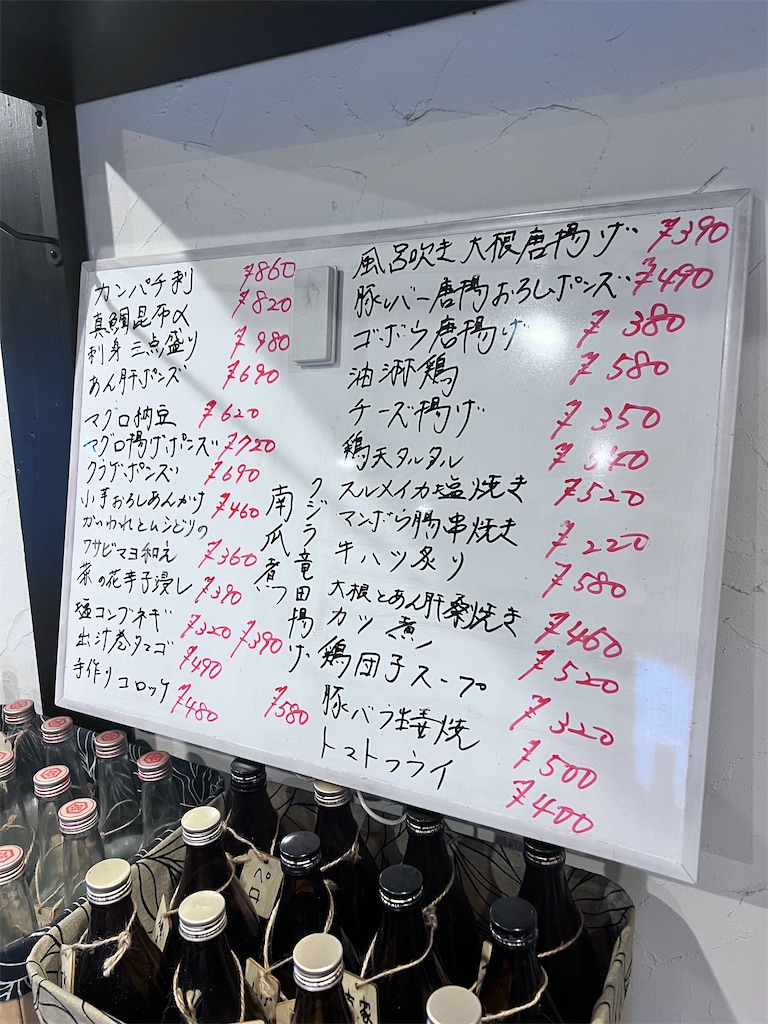 カンパチ刺 ¥860
真鯛昆布〆 ¥820
刺身三点盛り ¥980
あん肝ポンズ ¥690
マグロ納豆 ¥620
マグロ揚げポンズ ¥720
クラゲポンズ ¥690
小芋おろしあんかけ ¥460
かいわれとムシどりの
ワサビマヨ和え ¥360
菜の花辛子浸し ¥390
塩コンブネギ ¥320
出汁巻タマゴ ¥490
手作りコロッケ ¥480
南瓜煮 ¥390
クジラ竜田揚げ ¥580
風呂吹き大根唐揚げ ¥390
豚レバー唐揚おろしポンズ ¥490
ゴボウ唐揚げ ¥380
油淋鶏 ¥580
チーズ揚げ ¥350
鶏天タルタル
スルメイカ塩焼き ¥520
マンボウ腸串焼き ¥220
牛ハツ炙り ¥580
大根とあん肝奉焼き ¥460
カツ煮 ¥520
鶏団子スープ ¥320
豚バラ生姜焼 ¥500
トマトフライ ¥400
ペロ